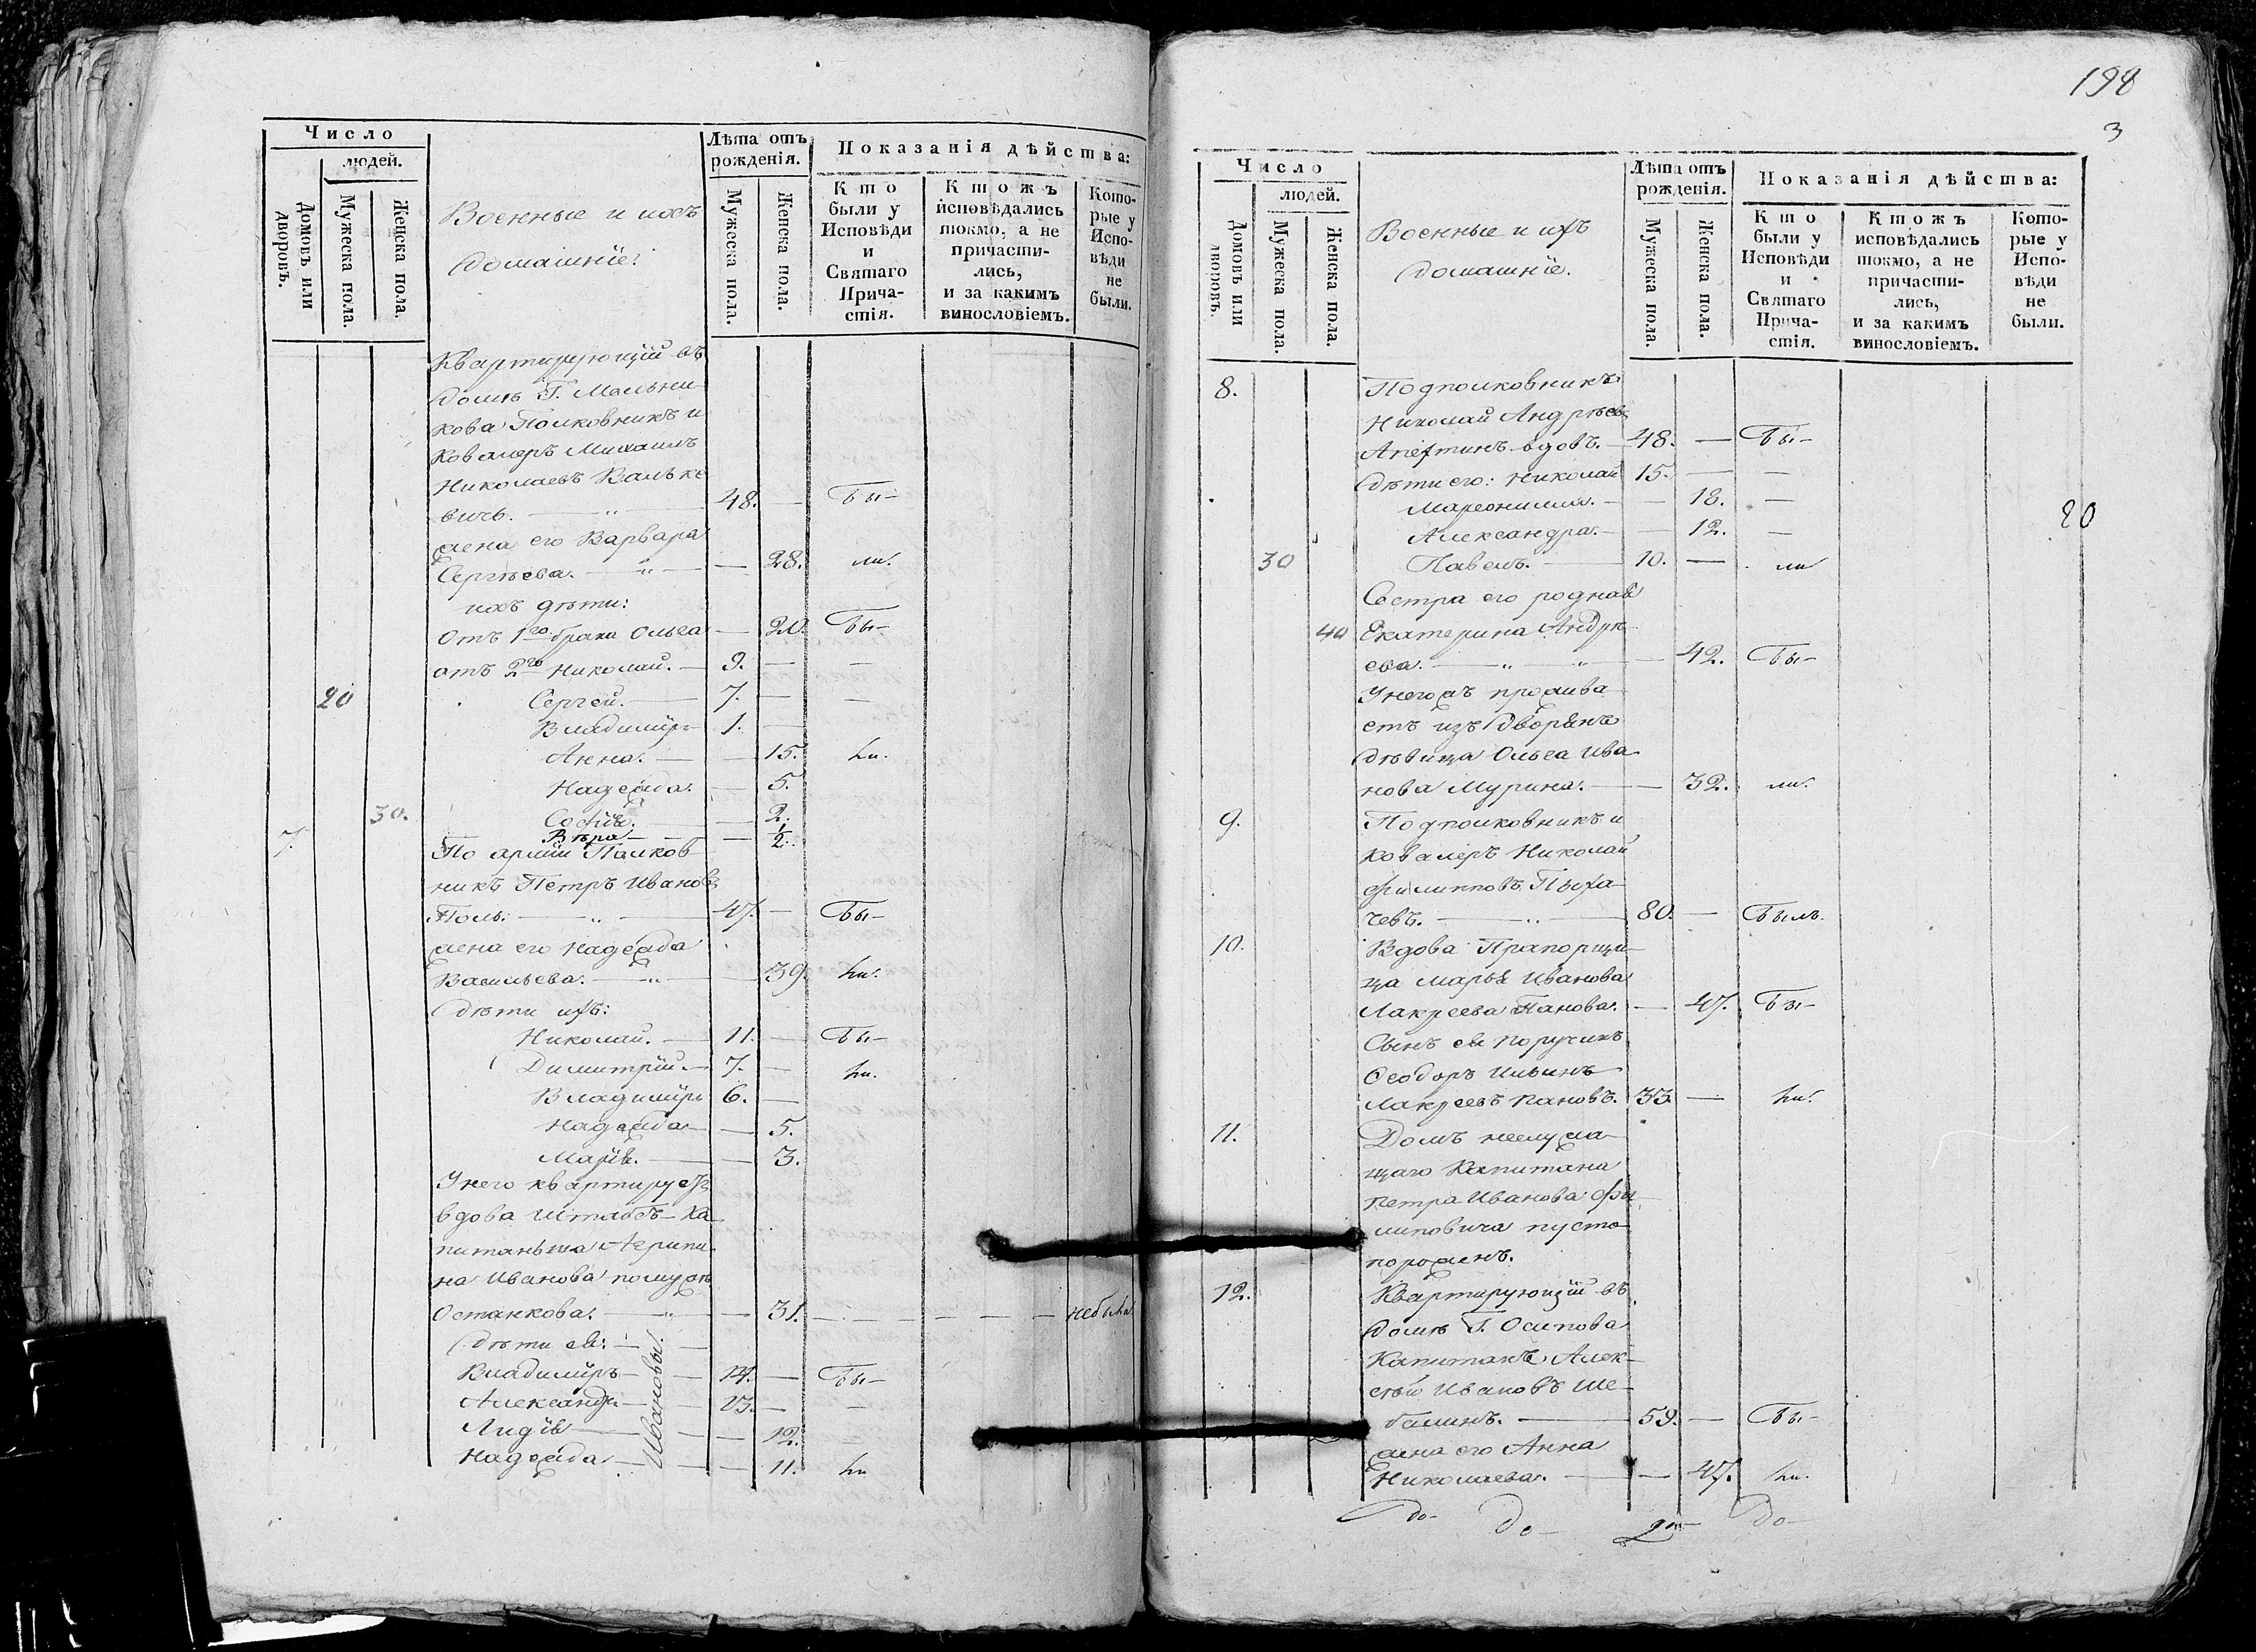 Число
людей.
Домовъ или дворовъ.
Мужеска пола.
Женска пола.
Военные и ихъ
домашніе:
Лѣта отъ рожденія.
Мужеска пола.
Женска пола.
Показанія дѣйства:
Кто были у Исповѣди и Святаго Прича-стія.
Ктожъ исповѣдались токмо, а не причасти-лись, и за какимъ винословіемъ.
Кото-рые у Испо-вѣди не были.
Квартирующій въ
домѣ Г. Мельни-
кова Полковникъ и
Кавалеръ Михаилъ
Николаевъ Вальке-
вичь. — 48. — Бы-
жена его Варвара
Сергѣева. — — 28. ли.
ихъ дѣти:
Отъ 1го брака Ольга — 20. Бы-
отъ 2го Николай. — 9. — —
20 Сергей. — 7. — —
Владиміръ 1. —
Анна. — — 15. ли.
Надежда. — 5.
30. Софія. — 2.
Вѣра — — 1/2.
7. По арміи Полков-
никъ Петръ Ивановъ
Поль. — 47. — Бы-
жена его Надежда
Васильева. — — 39. ли.
Дѣти ихъ:
Николай. — 11. — Бы-
Димитрій. — 7. — ли.
Владиміръ 6. —
Надежда — 5.
Марія. — — 3.
У него квартируетъ
вдова Штабсъ-Ка-
питанша Агрипи-
на Иванова по мужѣ
Останкова. — — 31. — — — — — небыла
Дѣти ея: —
Владиміръ — 14. — Бы-
Александръ — 13. — —
Лидія — — 12.
Надежда — — 11. ли
Ивановы.
198
3
Число
людей.
Домовъ или дворовъ.
Мужеска пола.
Женска пола.
Военные и ихъ
домашніе.
Лѣта отъ рожденія.
Мужеска пола.
Женска пола.
Показанія дѣйства:
Кто были у Исповѣди и Святаго Прича-стія.
Ктожъ исповѣдались токмо, а не причасти-лись, и за какимъ винословіемъ.
Кото-рые у Испо-вѣди не были.
8. Подполковникъ
Николай Андрѣевъ
вдовъ. 48. — Бы-
Дѣти его: Николай 15. — —
— 18. —
20
Александра. — — 12. —
30 Павелъ. — 10. — ли
Сестра его родная
40 Екатерина Андрѣ-
ева. — — 42. Бы-
У негожъ прожива-
етъ изъ Дворянъ
дѣвица Ольга Ива-
нова Мурина. — — 32. ли.
9. Подполковникъ и
Кавалеръ Николай
Филиповъ Пыха-
чевъ. — 80. — Былъ.
10. Вдова Прапорщи-
ца Марья Иванова
Макреева Панова. — 47. Бы-
Сынъ ея Поручикъ
Ѳеодоръ Ильинъ
Макреевъ Пановъ. 33. — ли.
11. Домъ неслужа-
щаго Капитана
Петра Иванова Фи-
липовича пусто-
порожень.
12. Квартирующій въ
домѣ Г. Осипова
Капитанъ Алек-
сѣй Ивановъ Ше-
балинъ. — 59. — Бы-
жена его Анна
Николаева. — — 47. ли.
До- до- 2 до-